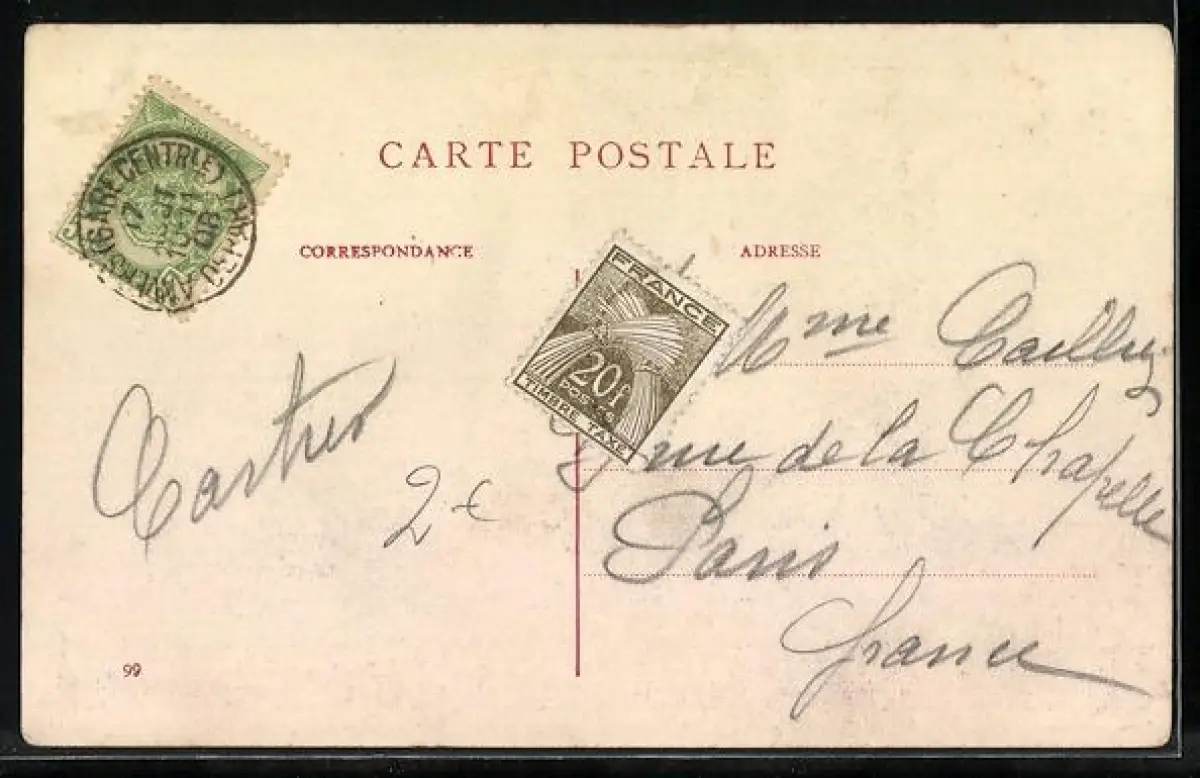 CARTE POSTALE
(GARE CENTRLE) ANVERS
CORRESPONDANCE
ADRESSE
FRANCE
20F
POSTES
TIMBRE TAXE
Mme
rue de la Chapelle
Paris
France
Castres
2 €
99